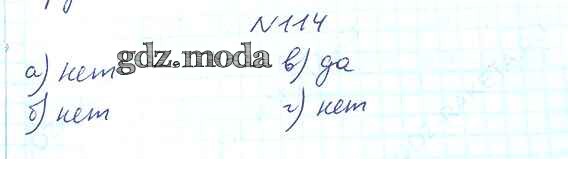 N114
а) нет gdz.moda в) да
б) нет г) нет